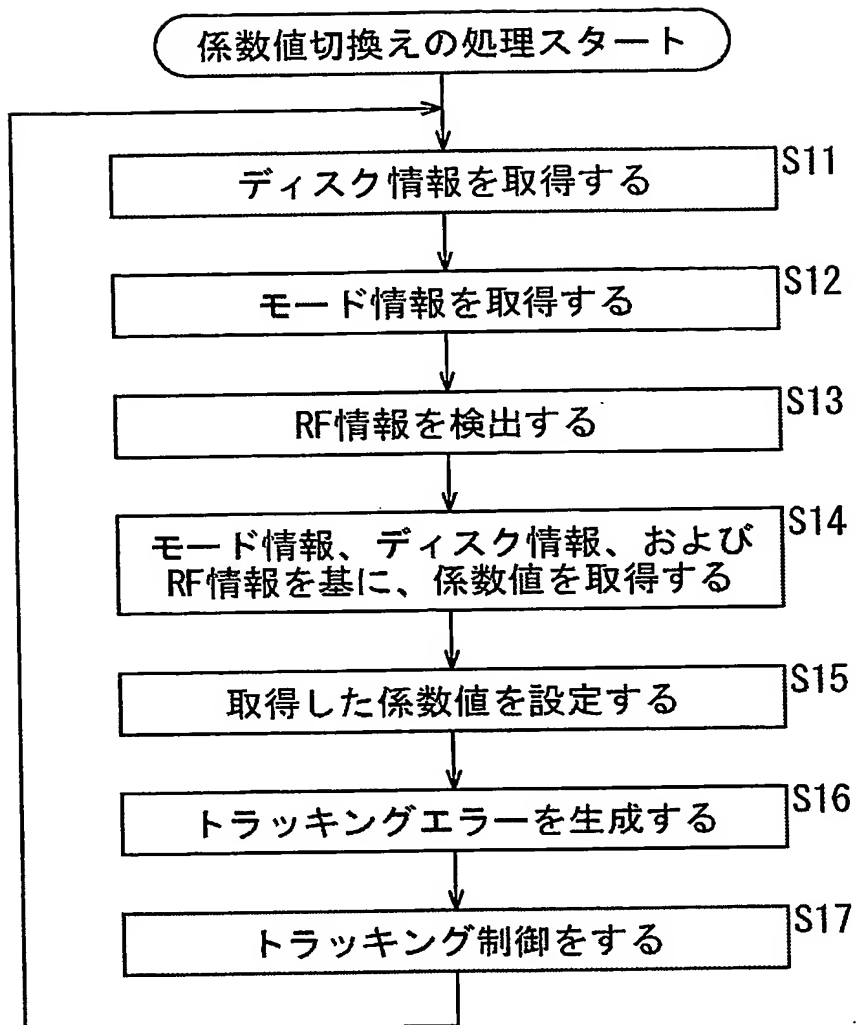 係数値切換えの処理スタート
S11
ディスク情報を取得する
S12
モード情報を取得する
S13
RF情報を検出する
S14
モード情報、ディスク情報、および
RF情報を基に、係数値を取得する
S15
取得した係数値を設定する
S16
トラッキングエラーを生成する
S17
トラッキング制御をする